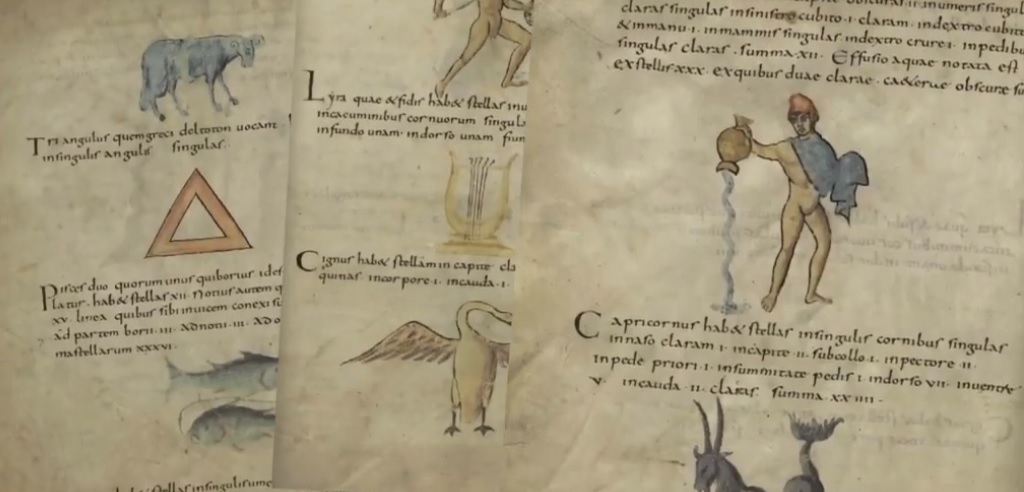 Triangulus quem greci deltoton uocant
insingulis angulis singulas.
Pisces duo quorum unus quiborius
hab& stellas XII. Notius autem
XV. linea quibus sibi inuicem conexi
ad partem borii III. adnoni III. ad
ma stellarum XXXVI.
hab& stellas insingulis
Lyra quae & fidis hab& stellas
incacuminibus cornuorum
infundo unam. indorso unam
Cignus hab& stellam incapite
quinas incorpore I. incauda I.
obscuras numeris
claras singulas insinistro cubito I. claram. indextro
& inmanu I. inmammis singulas indextro crure I. inpedibus
singulas claras. summa XII. Effusio aquae notata est
exstellis XXX. exquibus duae clarae. ca&erae obscurae
Capricornus hab& stellas insingulis cornibus singulas
innaso claram I. incapite II. subcollo I. inpectore II.
inpede priori I. insummitate pedis I. indorso VII. inuentre
V. incauda II. claras. summa XXIIII.